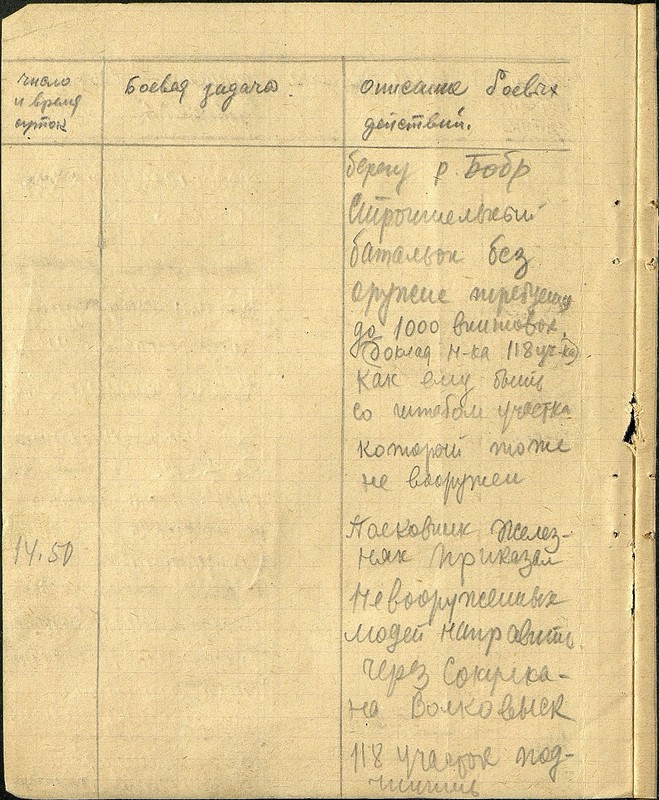 число
и время
суток
Боевая задача.
описание боевых
действий.
берегу р. Бобр
Строительный
батальон без
оружие требуется
до 1000 винтовок.
(Доклад н-ка 118 уч-ка)
Как ему быть
со штабом участка
который тоже
не вооружен
14.50
Полковник Желез-
няк приказал
Невооруженных
людей направить
через Сокулка-
на Волковыск
118 участок под-
чинить